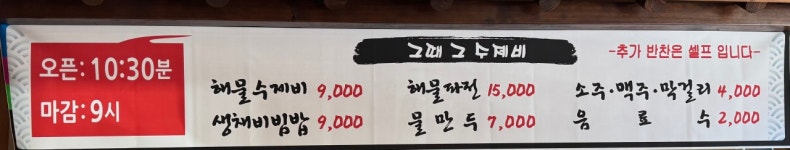 오픈: 10:30분
마감: 9시
그때 그 수제비
-추가 반찬은 셀프 입니다-
해물수제비 9,000
생채비빔밥 9,000
해물파전 15,000
물만두 7,000
소주·맥주·막걸리 4,000
음료수 2,000